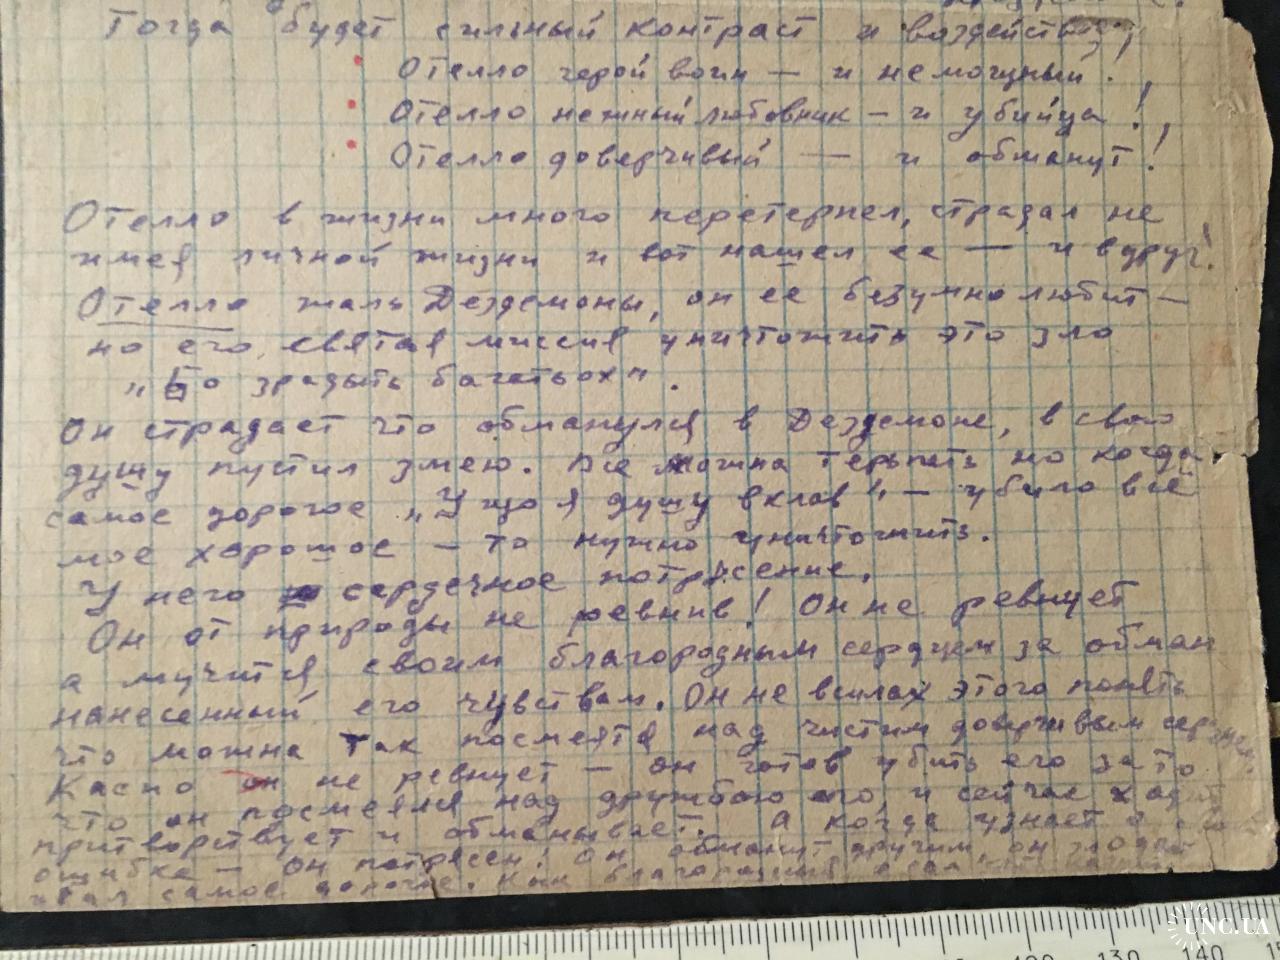 Тогда будет сильный контраст и воздейств
Отелло герой воин — и немощный!
Отелло нежный любовник — и убийца!
Отелло доверчивый — и обманут!
Отелло в жизни много перетерпел, страдал не
имея личной жизни и вот нашел ее — и вдруг!
Отелло жаль Дездемоны, он ее безумно любит —
но его святая миссия уничтожить это зло
„Бо зрадыть багатьох".
Он страдает что обманулся в Дездемоне, в свою
душу пустил змею. Все можна терпеть но когда
самое дорогое „У що я душу вклав" — убило всё
мое хорошое — то нужно уничтожить.
У него сердечное потрясение.
Он от природы не ревнив! Он не ревнует
а мучится своим благородным сердцем за обман
нанесенный его чувствам. Он не в силах этого понять
что можна так посмеятся над чистим доверчивым
Касио он не ревнует — он готов убить его за то
что он посмеялся над дружбою его, и сейчас
притворствует и обманывает. А когда узнает о
ошибке — он потрясен. Он обманут другим он
самое дорогое.
100 130 140
UNC.UA